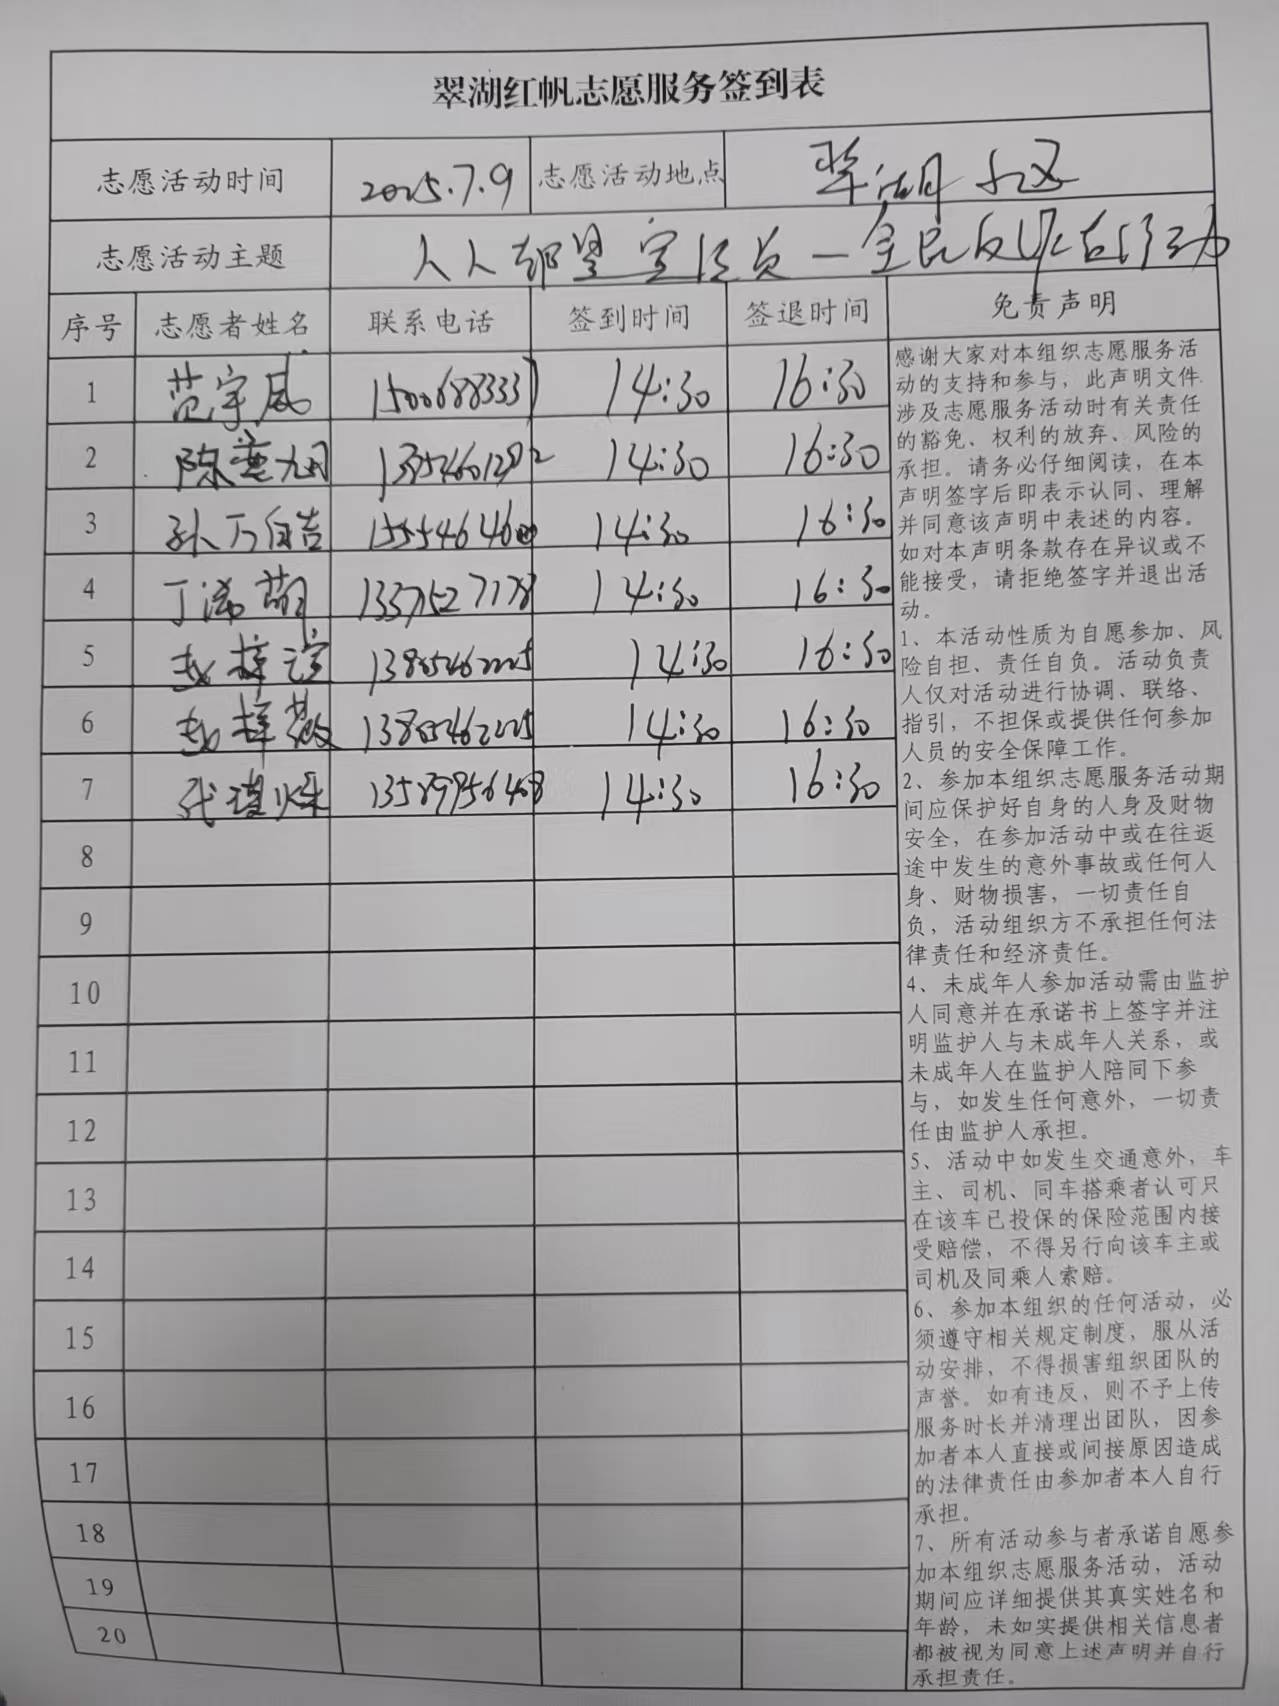 翠湖红帆志愿服务签到表
志愿活动时间 2025.7.9 志愿活动地点 翠湖小区
志愿活动主题 人人都是宣传员—全民反诈在行动
序号 志愿者姓名 联系电话 签到时间 签退时间 免责声明
1 范宇 14:30 16:30
2 陈 14:30 16:30
3 孙 14:30 16:30
4 丁 14:30 16:30
5 赵梓 14:30 16:30
6 赵梓薇 14:30 16:30
7 张 14:30 16:30
8
9
10
11
12
13
14
15
16
17
18
19
20
感谢大家对本组织志愿服务活
动的支持和参与，此声明文件
涉及志愿服务活动时有关责任
的豁免、权利的放弃、风险的
承担。请务必仔细阅读，在本
声明签字后即表示认同、理解
并同意该声明中表述的内容。
如对本声明条款存在异议或不
能接受，请拒绝签字并退出活
动。
1、本活动性质为自愿参加、风
险自担、责任自负。活动负责
人仅对活动进行协调、联络、
指引，不担保或提供任何参加
人员的安全保障工作。
2、参加本组织志愿服务活动期
间应保护好自身的人身及财物
安全，在参加活动中或在往返
途中发生的意外事故或任何人
身、财物损害，一切责任自
负，活动组织方不承担任何法
律责任和经济责任。
4、未成年人参加活动需由监护
人同意并在承诺书上签字并注
明监护人与未成年人关系，或
未成年人在监护人陪同下参
与，如发生任何意外，一切责
任由监护人承担。
5、活动中如发生交通意外，车
主、司机、同车搭乘者认可只
在该车已投保的保险范围内接
受赔偿，不得另行向该车主或
司机及同乘人索赔。
6、参加本组织的任何活动，必
须遵守相关规定制度，服从活
动安排，不得损害组织团队的
声誉。如有违反，则不予上传
服务时长并清理出团队，因参
加者本人直接或间接原因造成
的法律责任由参加者本人自行
承担。
7、所有活动参与者承诺自愿参
加本组织志愿服务活动，活动
期间应详细提供其真实姓名和
年龄，未如实提供相关信息者
都被视为同意上述声明并自行
承担责任。